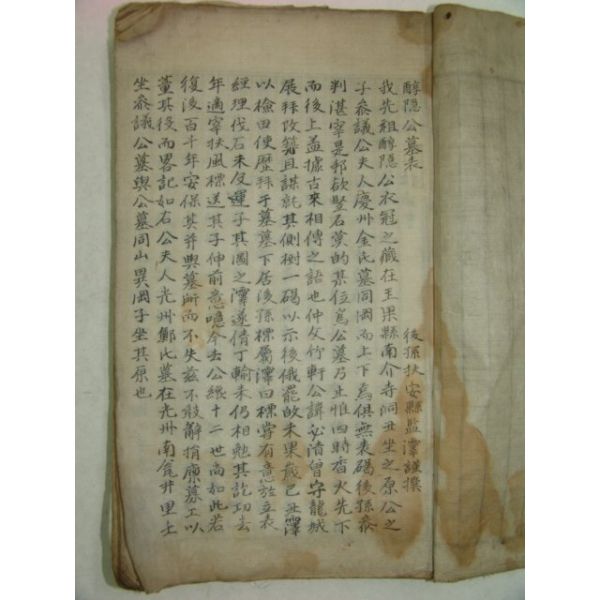 醇隱公墓表
後孫扶安縣監澤謹撰
我先祖醇隱公衣冠之藏在玉果縣南介寺洞丑坐之原公之
子參議公夫人慶州金氏墓同岡而上下爲俱無表碣後孫參
判湛宰是邦欲竪石莫的某位爲公墓乃止雅四時香火先下
而後上盖據古來相傳之語也仲父竹軒公諱必淸曾守龍城
展拜改簪且謀就其側樹一碣以示後俄罷故未果歲己丑澤
以檢田使歷拜于墓墓下居後孫標屬澤曰標嘗有意於立表
經理伐石未及運子其圖之澤遂倩丁輸來仍相勉其訖功去
年適宰扶風標送其子伸前意噫今去公纔十二世尚如此若
復後百千年安保其幷與墓所而不失玆不敢辭捐廩募工以
董其後而畧記如右公夫人光州鄭氏墓在光州南瓮井里士
坐參議公墓與公墓同山異岡子坐其原也